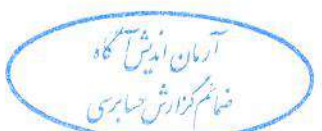 آرمان اندیش آگاه
ضمائم گزارش حسابرسی